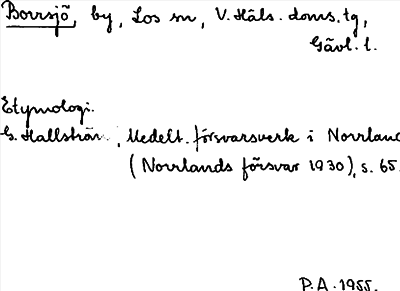 Borrsjö, by, Los sn, V. Häls. doms. tg,
Gävl. l.
Etymologi.
G. Hallström, Medelt. försvarsverk i Norrland
(Norrlands försvar 1930), s. 65.
P.A. 1955.